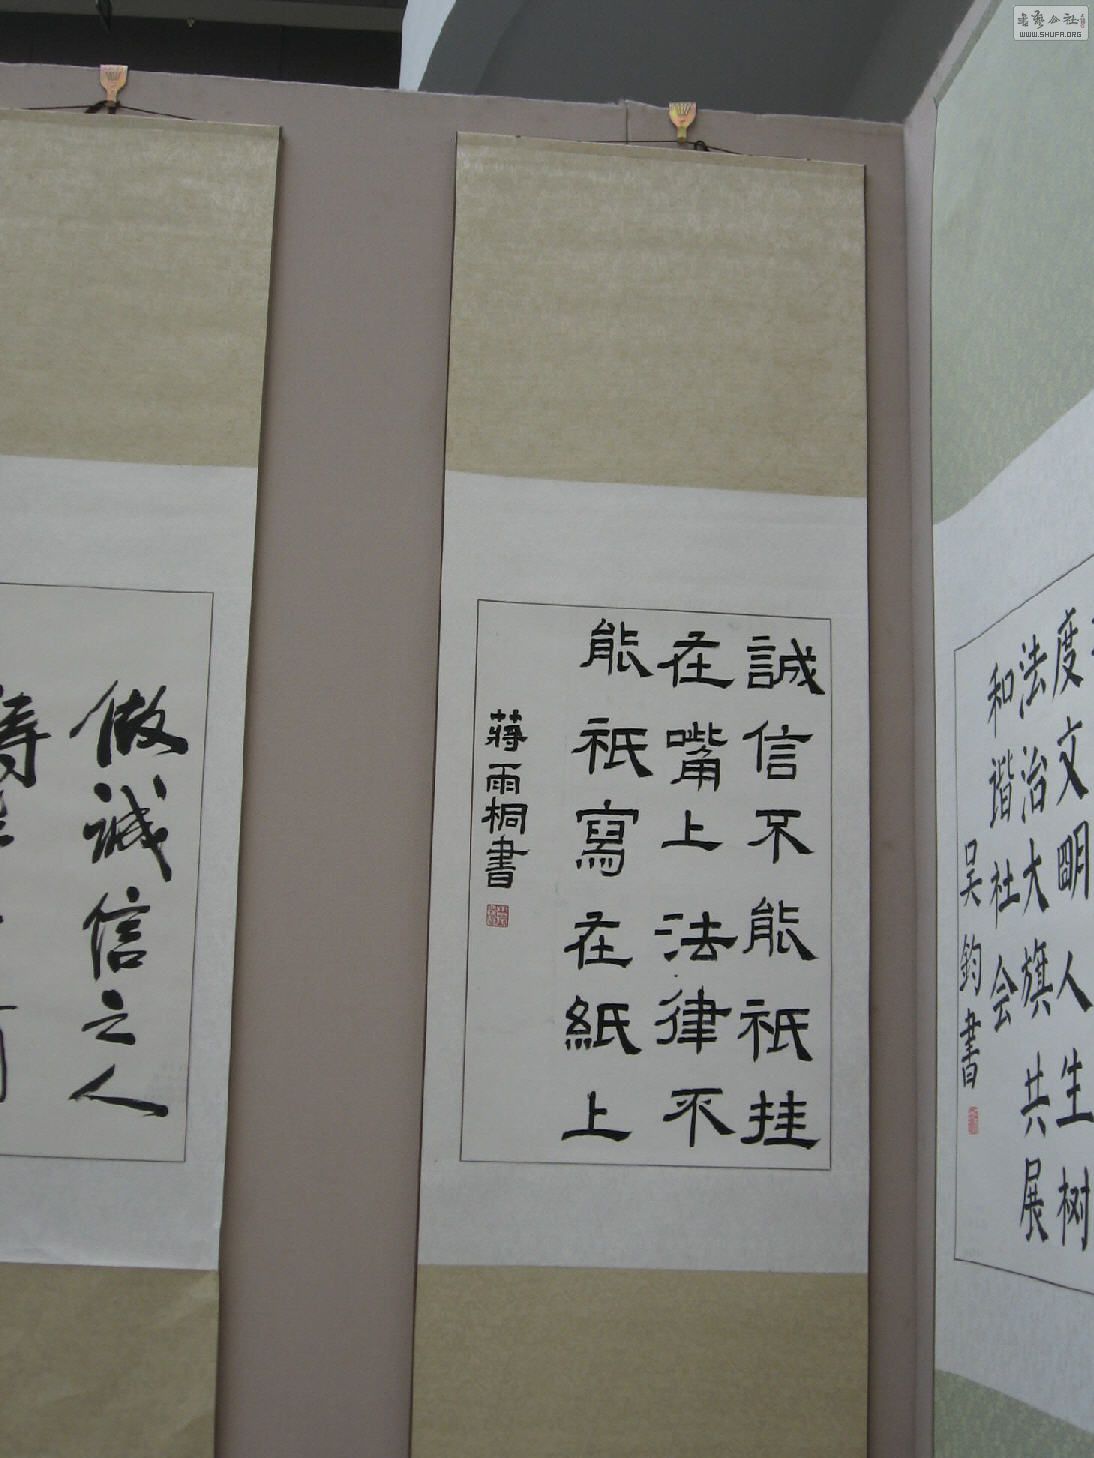 誠信不能祇挂
在嘴上法律不
能祇寫在紙上
蔣雨桐書
做诚信之人
度文明人生树
法治大旗共展
和谐社会
吴鈞書
書藝公社
WWW.SHUFA.ORG